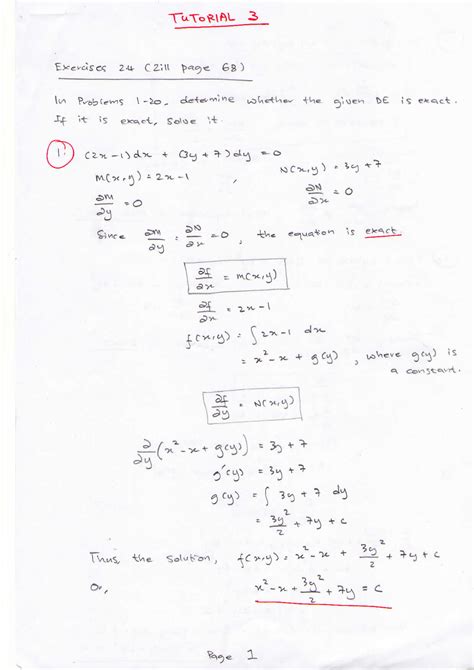 TUTORIAL 3
Exercises 2.4 (Zill page 68)
In Problems 1-20, determine whether the given DE is exact.
If it is exact, solve it.
1. (2x-1)dx + (3y+7)dy = 0
M(x,y) = 2x-1 , N(x,y) = 3y+7
∂M/∂y = 0 ∂N/∂x = 0
Since ∂M/∂y = ∂N/∂x = 0, the equation is exact.
∂f/∂x = M(x,y)
∂f/∂x = 2x-1
f(x,y) = ∫ 2x-1 dx
= x² - x + g(y) , where g(y) is
a constant.
∂f/∂y = N(x,y)
∂/∂y (x² - x + g(y)) = 3y + 7
g'(y) = 3y + 7
g(y) = ∫ 3y + 7 dy
= 3y²/2 + 7y + c
Thus, the solution, f(x,y) = x² - x + 3y²/2 + 7y + c
Or, x² - x + 3y²/2 + 7y = c
Page 1